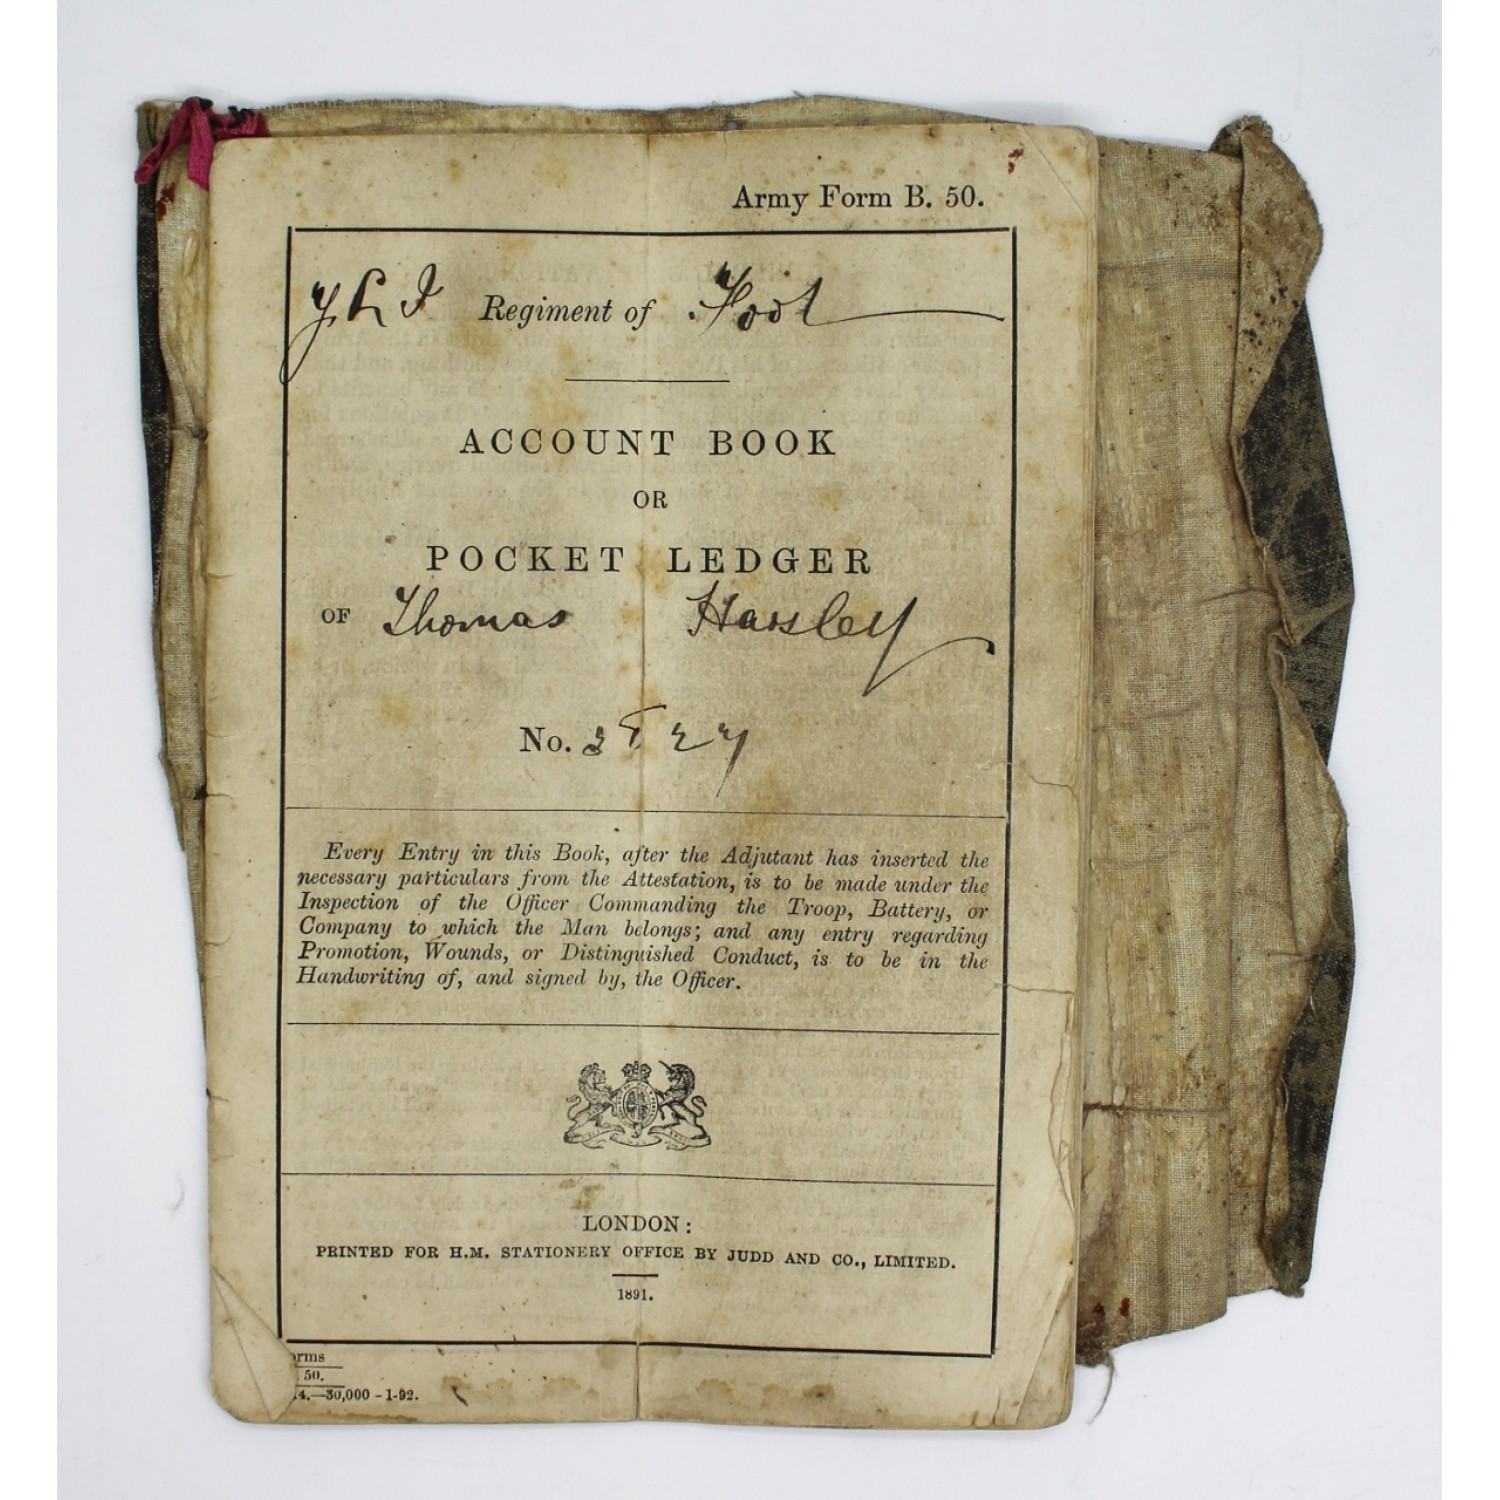 Army Form B. 50.
Y L I Regiment of Foot
ACCOUNT BOOK
OR
POCKET LEDGER
OF Thomas Harsley
No.
Every Entry in this Book, after the Adjutant has inserted the
necessary particulars from the Attestation, is to be made under the
Inspection of the Officer Commanding the Troop, Battery, or
Company to which the Man belongs; and any entry regarding
Promotion, Wounds, or Distinguished Conduct, is to be in the
Handwriting of, and signed by, the Officer.
LONDON:
PRINTED FOR H.M. STATIONERY OFFICE BY JUDD AND CO., LIMITED.
1891.
orms
50.
14.—30,000-1-92.